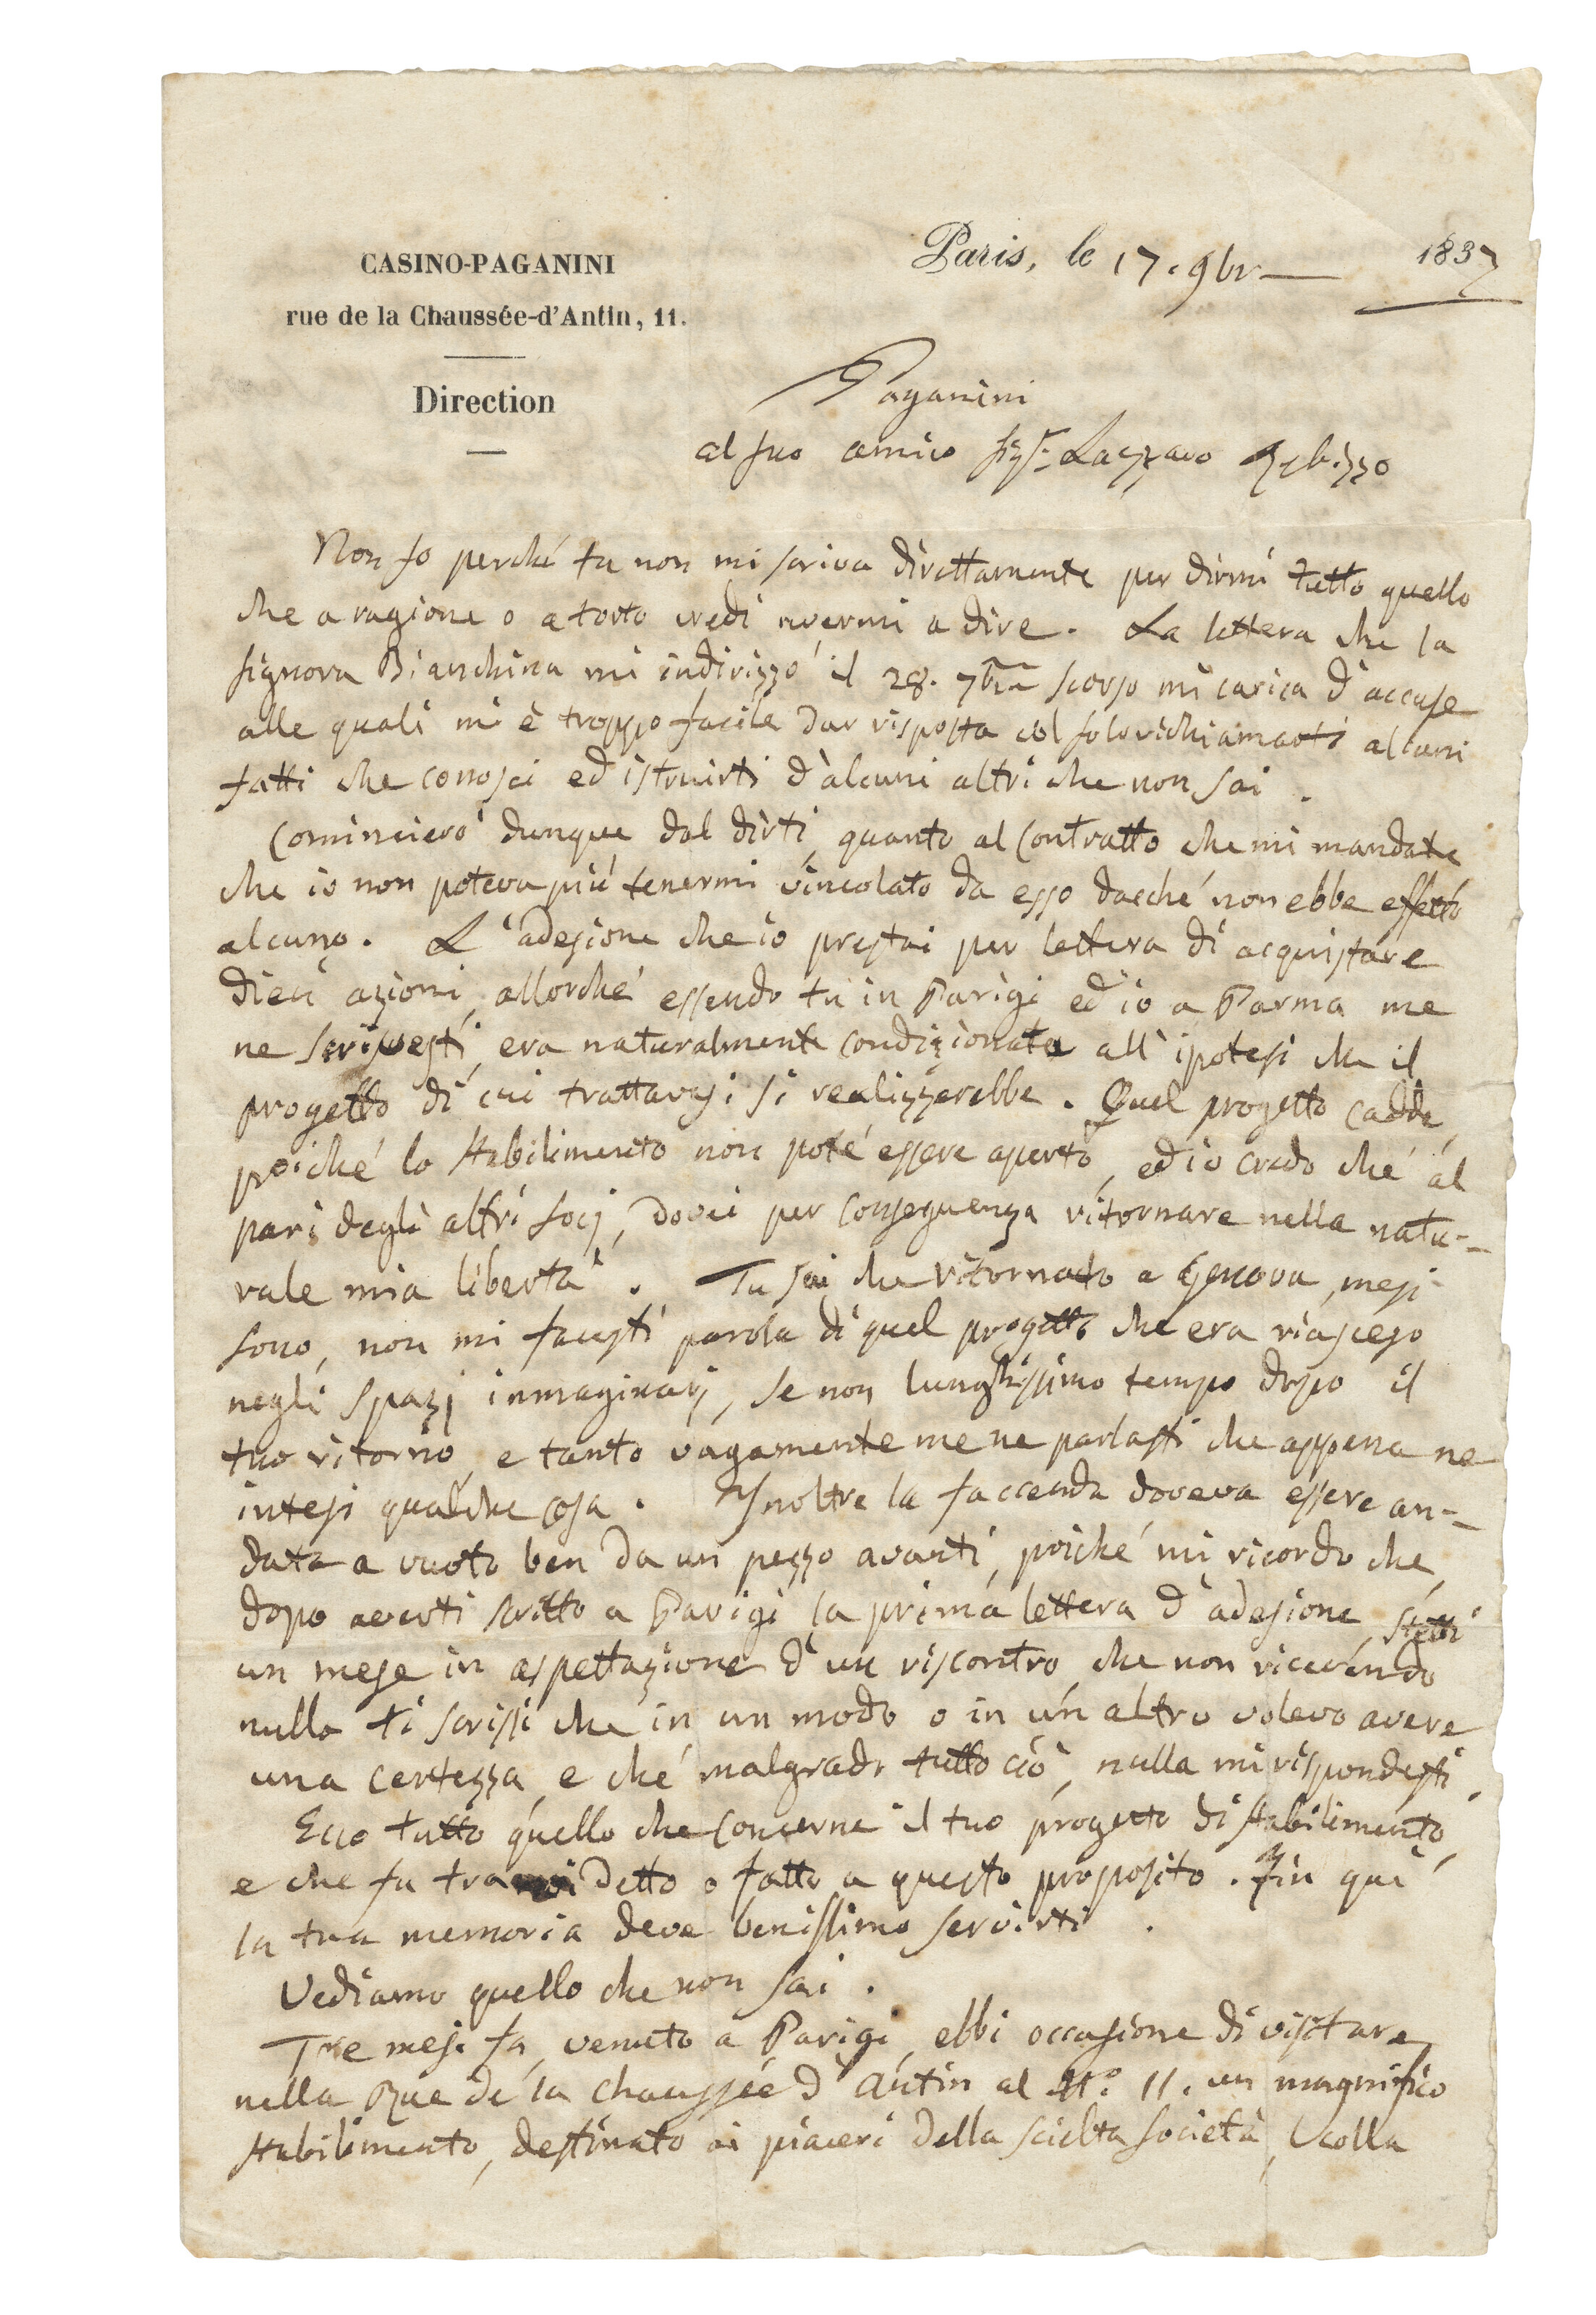 CASINO-PAGANINI
rue de la Chaussée-d'Antin, 11.
Direction
Paris, le 17. 9br 1837
Paganini
al suo amico Sigr. Lazzaro Rebizzo
Non so perché tu non mi scriva direttamente per dirmi tutto quello
che a ragione o a torto credi avermi a dire. La lettera che la
Signora Bianchina mi indirizzò il 28. 7bre scorso mi carica d'accuse
alle quali mi è troppo facile dar risposta col solo richiamarti alcuni
fatti che conosci ed istruirti d'alcuni altri che non sai.
Comincierò dunque dal dirti, quanto al Contratto che mi mandate
che io non poteva più tenermi vincolato da esso dacché non ebbe effetto
alcuno. L'adesione che io prestai per lettera di acquistare
dieci azioni, allorché essendo tu in Parigi ed io a Parma me
ne scrivesti, era naturalmente condizionata all'ipotesi che il
progetto di cui trattavasi si realizzerebbe. Quel progetto cadde,
poiché lo stabilimento non poté essere aperto, ed io credo che al
pari degli altri socj, dovei per conseguenza ritornare nella natu-
rale mia libertà. Tu sai che ritornato a Genova, mesi
sono, non mi facesti parola di quel progetto che era riasceso
negli spazj inmaginarj, se non lunghissimo tempo dopo il
tuo ritorno, e tanto vagamente me ne parlasti che appena ne
intesi qualche cosa. Inoltre la faccenda doveva essere an-
data a vuoto ben da un pezzo avanti, poiché mi ricordo che,
dopo averti scritto a Parigi la prima lettera d'adesione, stetti
un mese in aspettazione d'un riscontro, che non ricevendo
nulla ti scrissi che in un modo o in un altro volevo avere
una certezza, e che malgrado tutto ciò, nulla mi rispondesti.
Ecco tutto quello che concerne il tuo progetto di stabilimento,
e che fu tra noi detto o fatto a questo proposito. Fin qui
la tua memoria deve benissimo servirti.
Vediamo quello che non sai.
Tre mesi fa, venuto a Parigi, ebbi occasione di visitare
nella Rue de la Chaussée d'Antin al N.° 11. un magnifico
stabilimento, destinato ai piaceri della scielta società, colla